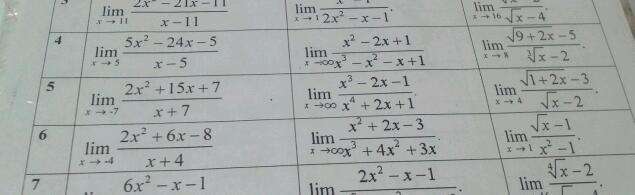 lim x → 11 2x² − 21x − 11 / x − 11
lim x → 1 / 2x² − x − 1
lim x → 16 / √x − 4
4 lim x → 5 5x² − 24x − 5 / x − 5
lim x → ∞ x² − 2x + 1 / x³ − x² − x + 1
lim x → 8 √9 + 2x − 5 / ∛x − 2
5 lim x → -7 2x² + 15x + 7 / x + 7
lim x → ∞ x³ − 2x − 1 / x⁴ + 2x + 1
lim x → 4 √1 + 2x − 3 / √x − 2
6 lim x → -4 2x² + 6x − 8 / x + 4
lim x → ∞ x² + 2x − 3 / x³ + 4x² + 3x
lim x → 1 √x − 1 / x² − 1
7 6x² − x − 1
lim 2x² − x − 1
lim ∜x − 2